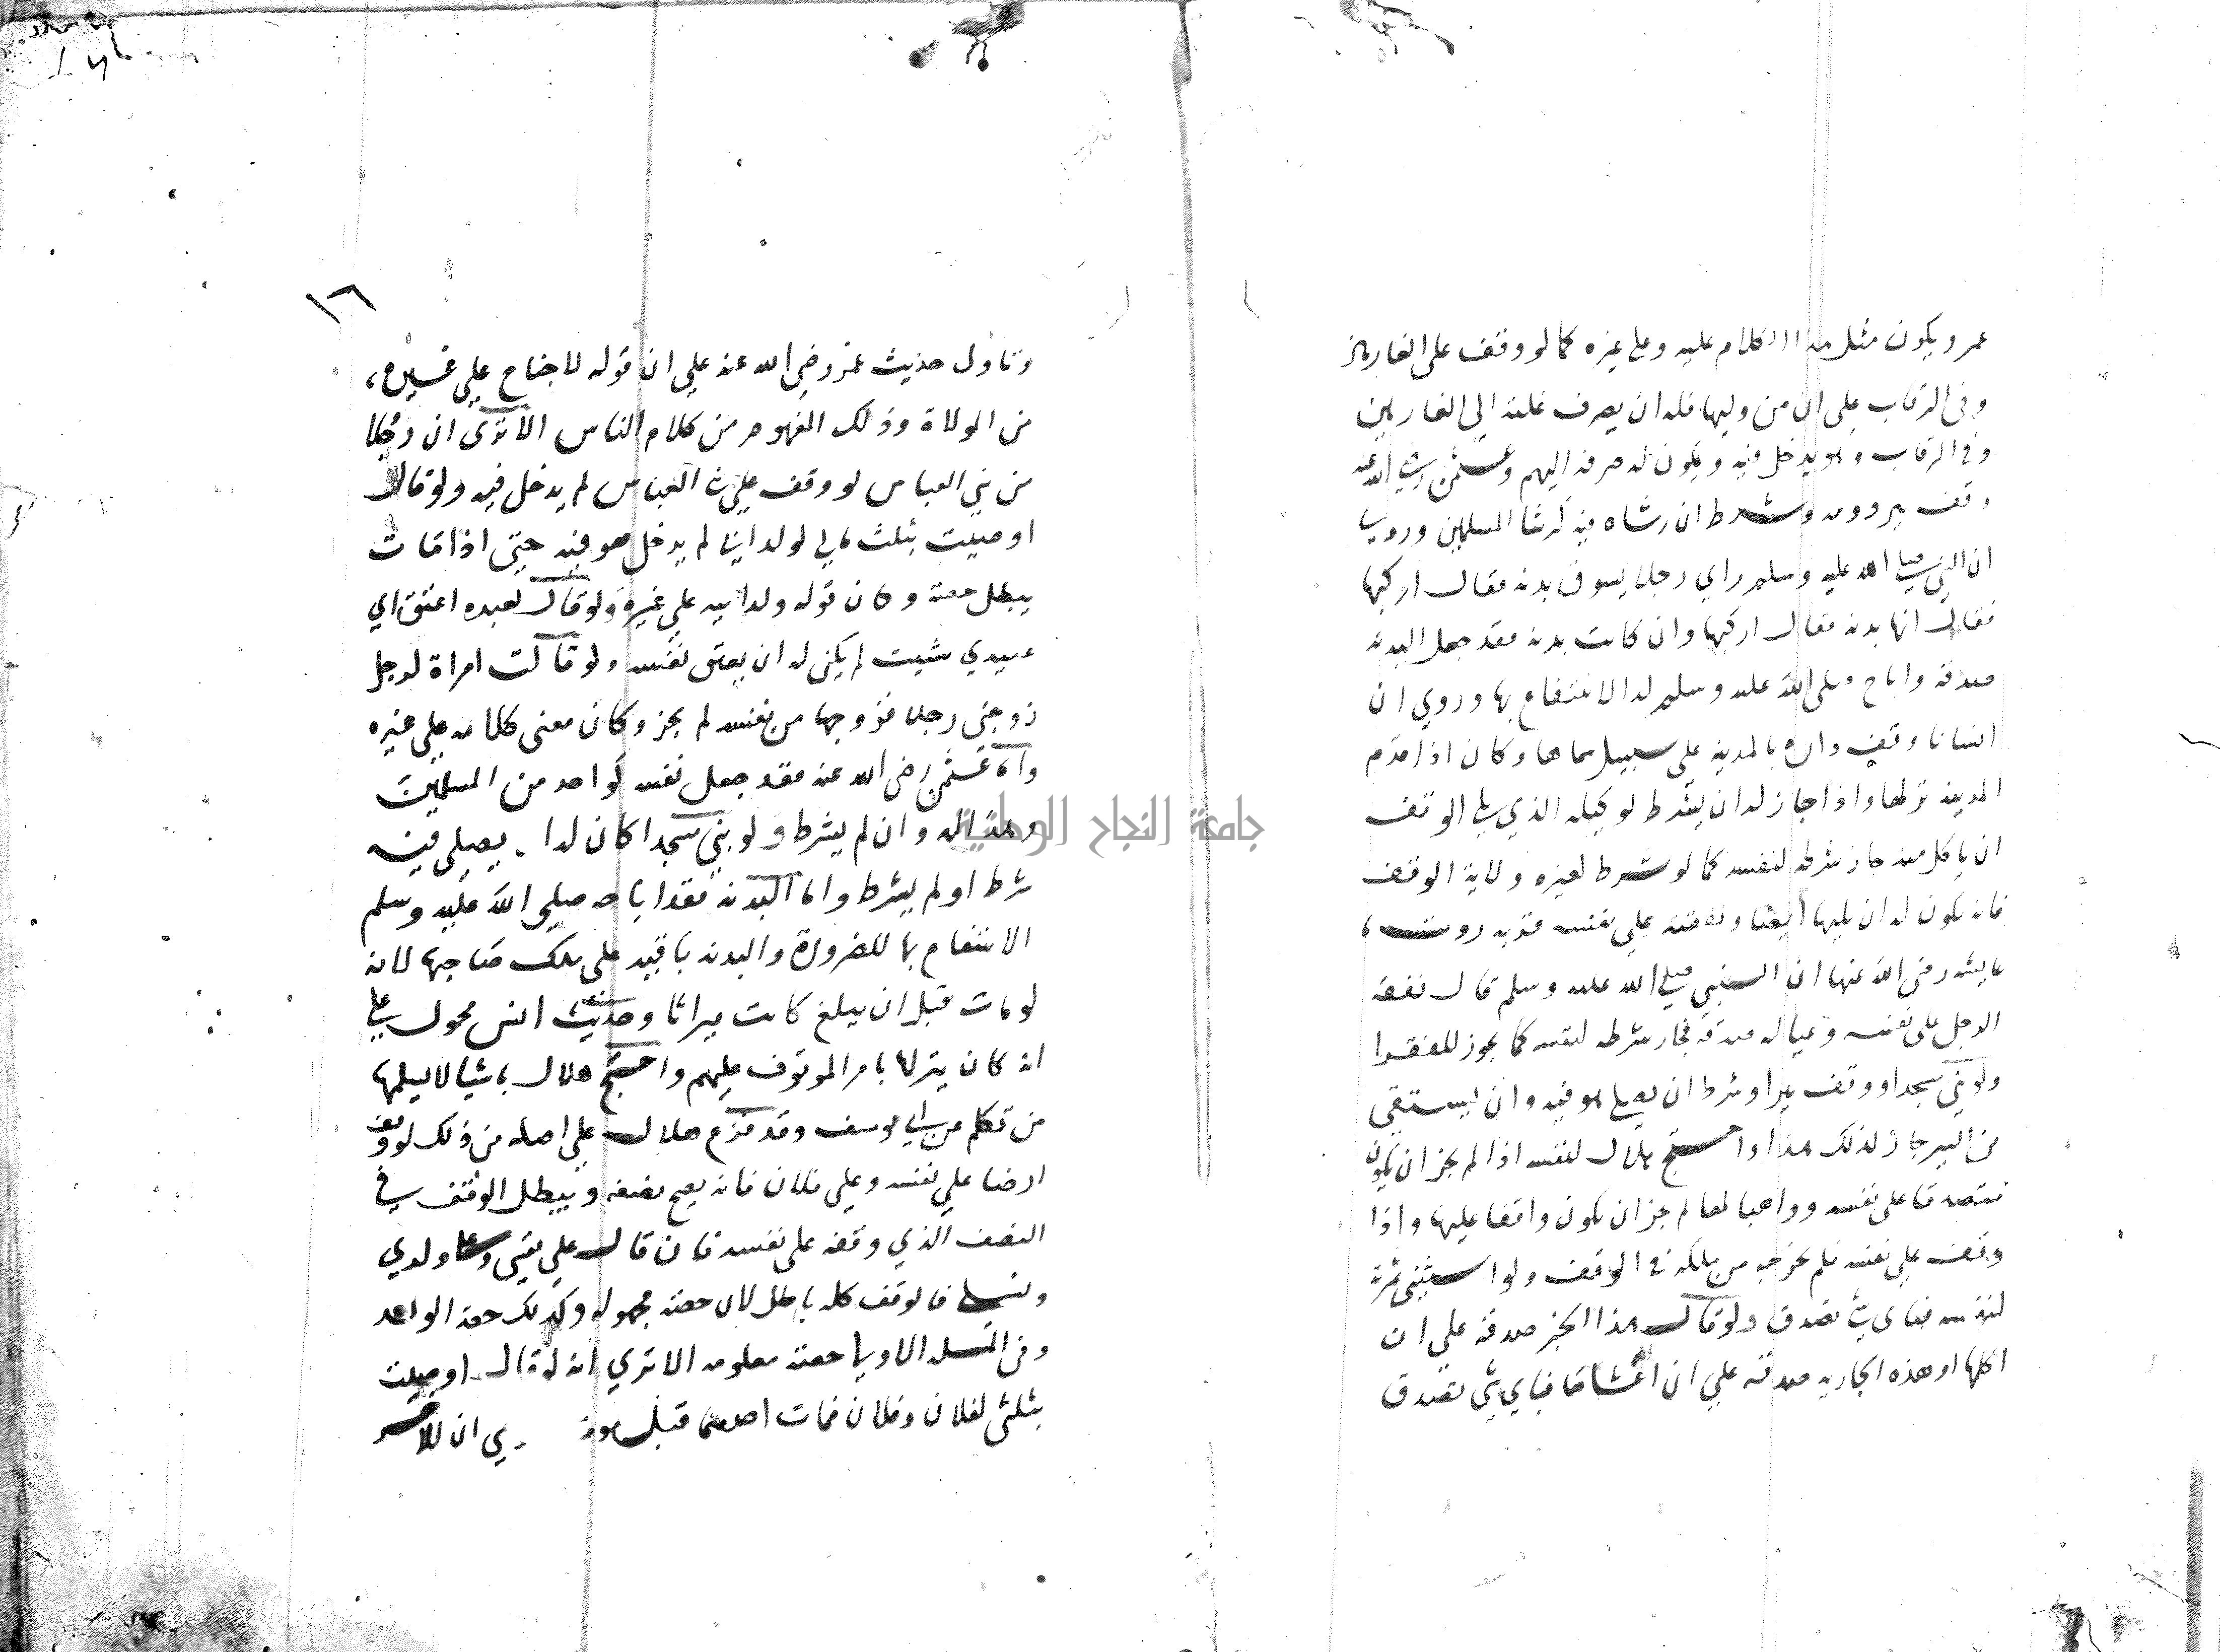 عمر ويكون مثل هذا الكلام عليه وعلى غيره كما لو وقف على الغارمين
وفي الرقاب على ان من وليها فله ان يصرف غلته الي الغارمين
وفي الرقاب وهو يدخل فيه ويكون له صرفه اليهم وعثمن رضي الله عنه
وقف بير رومه وشرط ان رشاه فيه كرشا المسلمين وروي
ان النبي صلى الله عليه وسلم راي رجلا يسوق بدنه فقال اركبها
فقال انها بدنه فقال اركبها وان كانت بدنه فقد جعل البدنه
صدقه واباح صلى الله عليه وسلم له الانتفاع بها وروي ان
انسانا وقف داره بالمدينه على سبيل سماها وكان اذا قدم
المدينه نزلها واذا جاز له ان يشرط لوكيله الذي يلي الوقف
ان ياكل منه جاز شرطه لنفسه كما لو شرط لغيره ولاية الوقف
فانه يكون له ان يليها ايضا ونفقته علي نفسه قربه روت
عايشه رضى الله عنها ان النبي صلى الله عليه وسلم قال نفقه
الرجل على نفسه وعياله صدقه فجاز شرطه لنفسه كما يجوز للفقرا
ولو بني مسجدا ووقف بيرا وشرط ان يصلي هو فيه وان يستقي
من البير جاز لذلك هذا واحتج هلال لنفسه اذا لم يجز ان يكون
متصدقا على نفسه وواهبا لها لم يجز ان يكون واقفا عليها واذا
وقف علي نفسه فلم يخرجه من ملكه في الوقف ولو استثنى ثمرته
لنفسه فباي شي تصدق ولو قال هذا الخبز صدقه علي ان
اكلها او هذه الجاريه صدقه علي ان اغشاها فباي شي تصدق
١٦
وتاول حديث عمر رضي الله عنه علي ان قوله لا جناح علي غيره
من الولاة وذلك المفهوم من كلام الناس الا ترى ان رجلا
من بني العباس لو وقف علي بني العباس لم يدخل فيه ولو قال
اوصيت بثلث مالي لولد ابي لم يدخل هو فيه حتي اذا مات
يبطل حصته وكان قوله ولد ابيه علي غيره ولو قال لعبده اعتق اي
عبيدي شيت لم يكن له ان يعتق نفسه ولو قالت امراة لرجل
زوجني رجلا فزوجها من نفسه لم يجز وكان معنى كلامه علي غيره
واما عثمن رضى الله عنه فقد جعل نفسه كواحد من المسلمين
وهذا له وان لم يشرط ولو بني مسجدا كان له ا يصلي فيه
شرط او لم يشرط واما البدنه فقد اباحه صلي الله عليه وسلم
الانتفاع بها للضرورة والبدنه باقيه على ملك صاحبها لانه
لو مات قبل ان يبلغ كانت ميراثا وحديث انس محمول علي
انه كان ينزلها بامر الموقوف عليهم واحتج هلال باشيا لا يسلمها
من تكلم عن ابي يوسف وقد قدم هلال علي اصله من ذلك لو وقف
ارضا علي نفسه وعلي فلان فانه يصح نصفه ويبطل الوقف في
النصف الذي وقفه على نفسه فان قال علي نفسي وعلى ولدي
ونسلي فالوقف كله باطل لان حصته مجهوله وكذلك حصة الواحد
وفي المسله الاولى حصته معلومه الا تري انه لو قال اوصيت
بثلثي لفلان وفلان فمات احدهما قبل موت ي ان للاخر
جامعة النجاح الوطنية